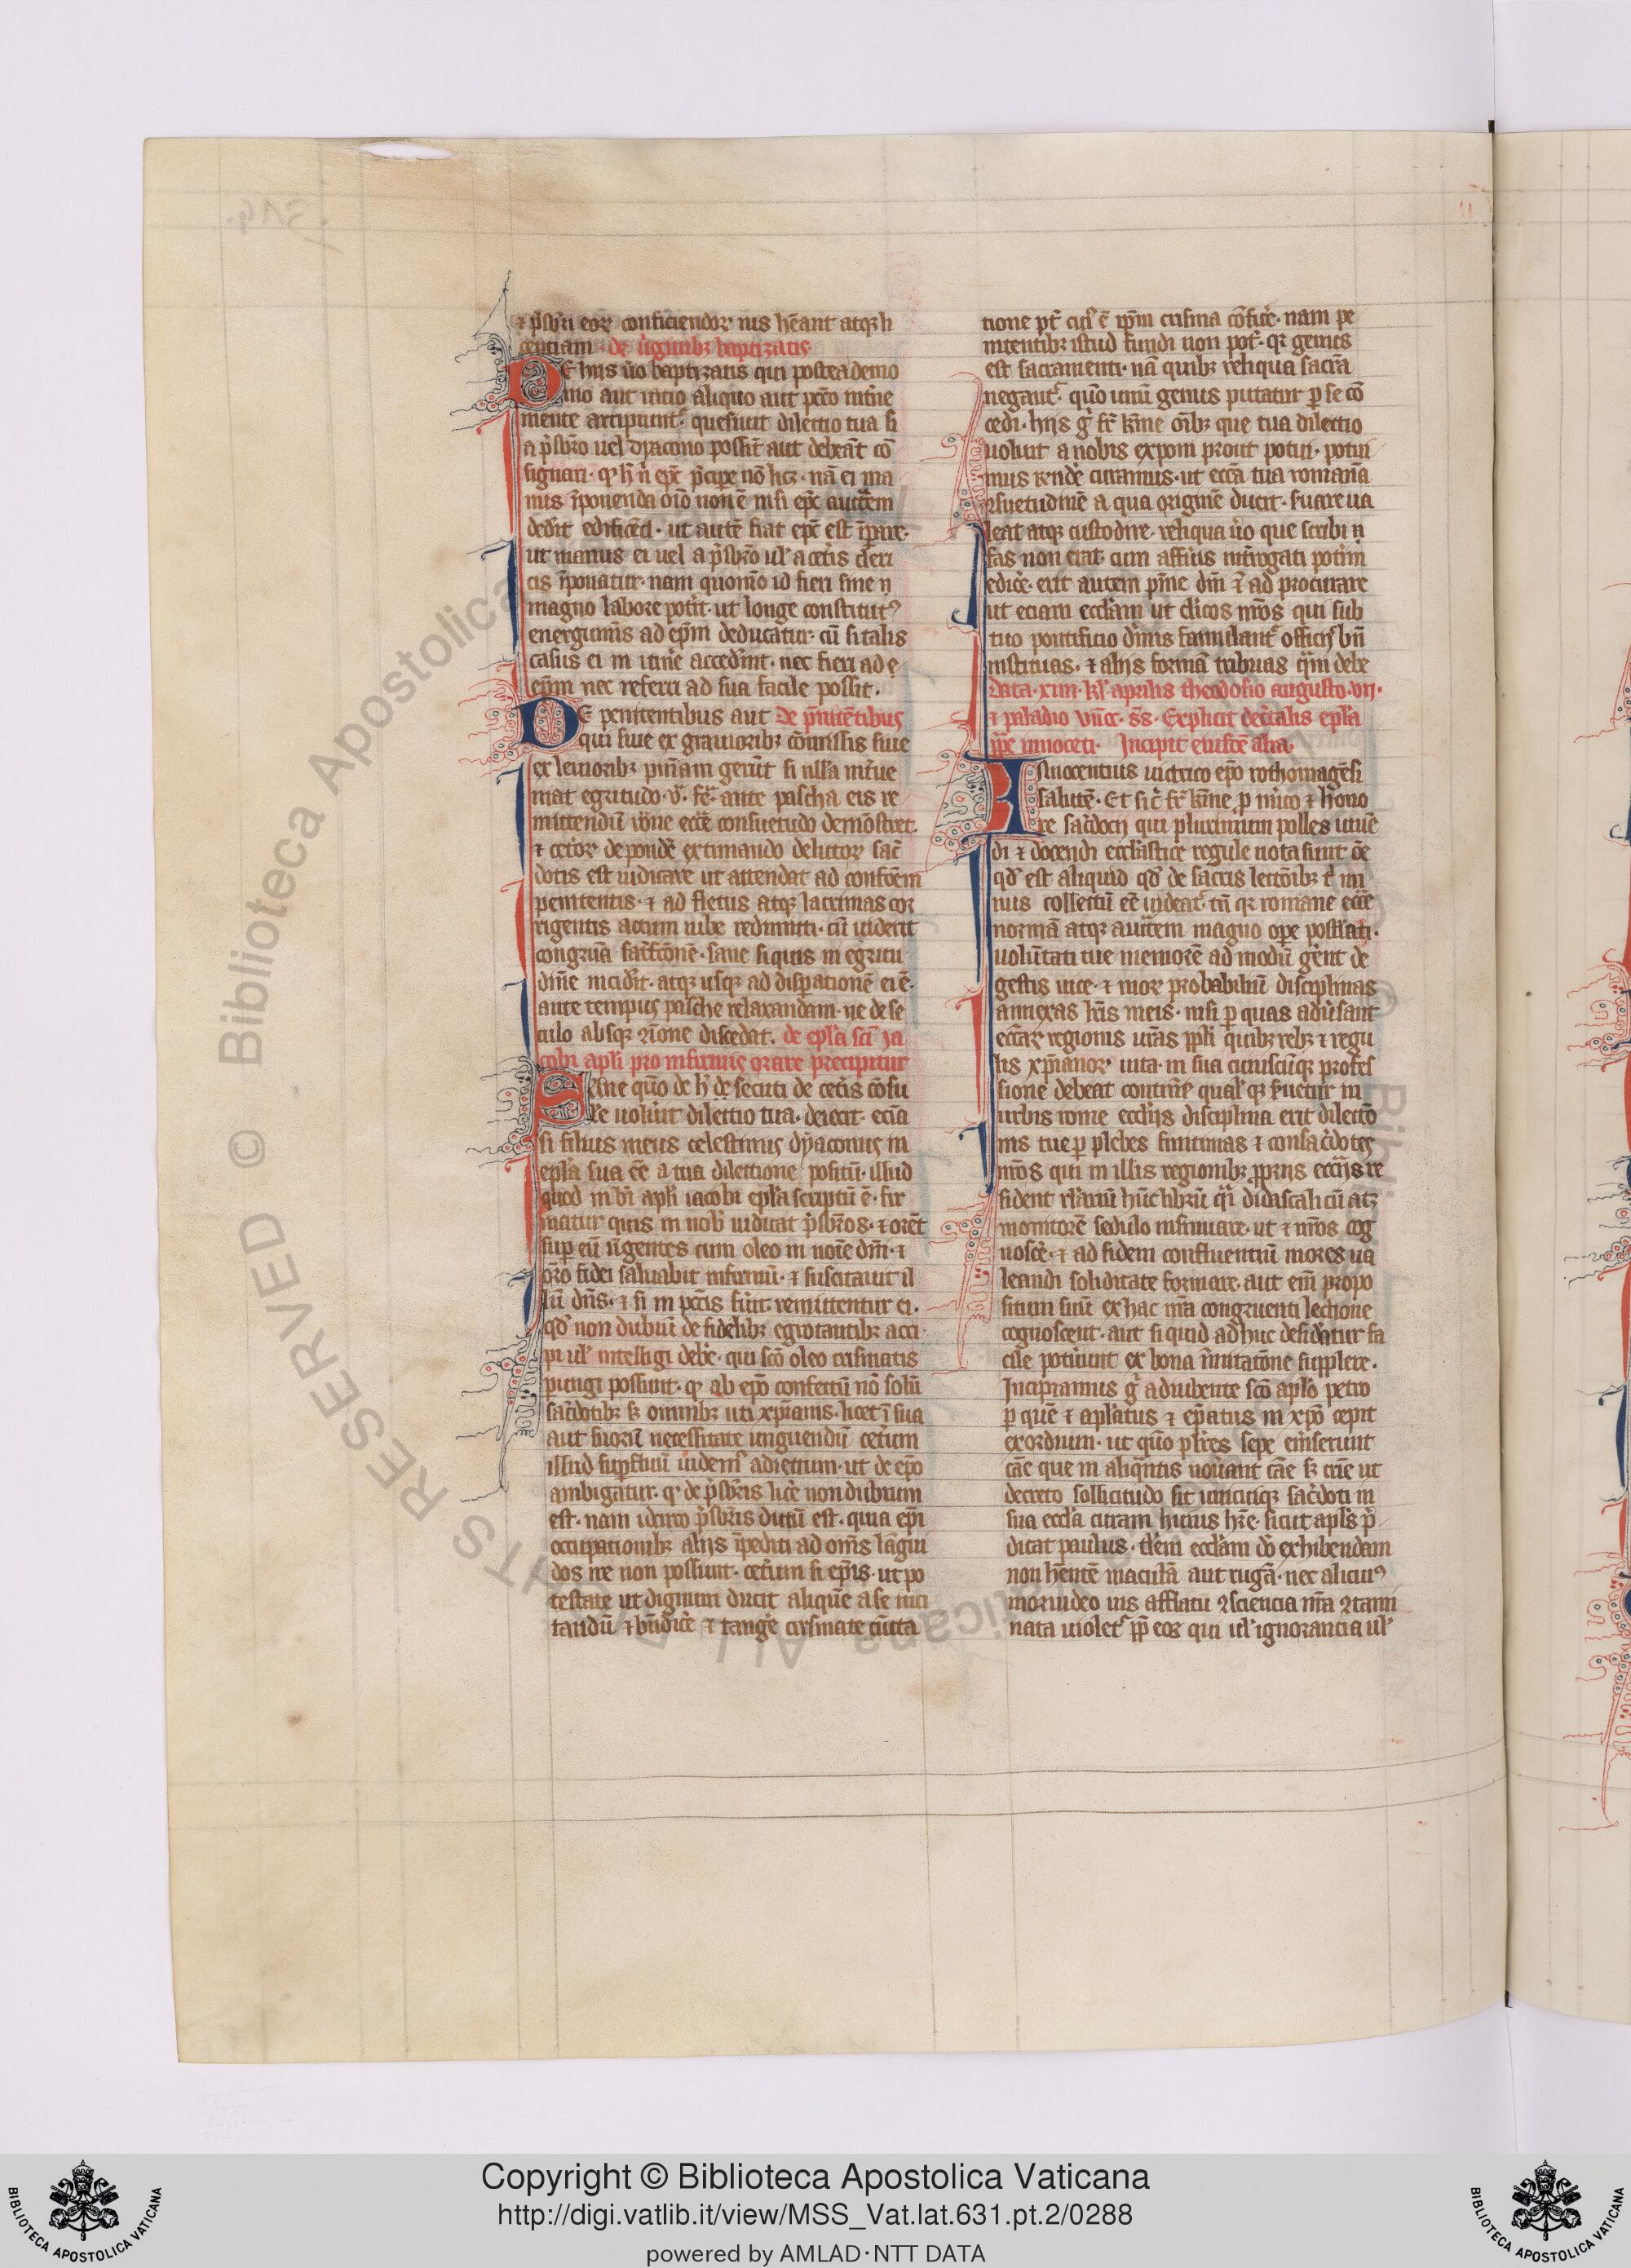 ⁊ p̄sbr̄i eoꝝ conficiendoꝝ ius hēant atqꝫ li
centiam. de signibꝫ baptizatis
DE hiis ūo baptizatis qui postea demo
nio aut uitio aliquo aut pctō int̄ue
niente arripiunt᷑. quesiuit dilectio tua si
a p̄sbr̄o uel dyacono possit aut debeāt cō
signari. qꝫ
nus īponenda oīo non ē nisi epc̄ auctē͞m
ded̄it
ut manus ei uel a p̄sbr̄o ul̓ a cet̄is cleri
cis īponatur. nam quom̄o id fieri sine
magno labore pot̄it. ut longe constitutꝰ
energumin̄s ad ep̄m deducatur. cū si talis
casus ei in itin̄e accid̄int. nec fieri ad e
ep̄m nec referri ad sua facile possit.
DE penitentibus aut de p̄nitētibus
qui siue ex grauioribꝫ cōmissis siue
ex leuioribꝫ pn̄iam gerūt si nulla int̄ue
niat egritudo. ante pascha eis re
mittendū rōne eccē consuetudo demōstret.
⁊ cet̄oꝝ de pond̄e extimando delictoꝝ sac̄
dotis est iudicare ut attendat ad confēm
penitentis. ⁊ ad fletus atqꝫ lacrimas cor
rigentis actum iube redimitti. cū uiderit
congruā satisf̄cōnē. sane siquis in egritu
din̄e incid̄it. atqꝫ usqꝫ ad disꝑationē ei ē.
ante tempus pasche relaxandam. ne de se
culo absqꝫ ꝯ̄ione discedat. de epl̄a sc̄i ia
cobi apl̄i pro infirmis orare precipitur
Sane quō de h̄ de secuti de cet̄is cōsu
l̄e uoluit dilectio tua. deiecit. etiā
si filius meus celestinus dyaconus in
epl̄a sua ēē a tua dilectione positū. illud
quod in bī apl̄i iacobi epl̄a scriptū ē. fir
matur quis in uob̄ inducat p̄sbr̄os. ⁊ orēt
sup eū ūgentes eum oleo in noīe dn̄i. ⁊
or̄o fidei saluabit infirmū. ⁊ suscitauit il
lū dn̄s. ⁊ si in pctīs fuit. remittentur ei.
qd̄ non dubiū de fidelibꝫ egrotantibꝫ acci
pi ul̓ intelligi debe. qui scō oleo crismatis
pungi possunt. qꝫ ab epō confectū nō solū
sac̄dotibꝫ sꝫ omnibꝫ uti xp̄ianis. licet ī sua
aut suoꝝ necessitate unguendū cet̄um
illud supfluū uidem̄ adiectum. ut de epō
ambigatur. qꝫ de p̄sbr̄is lic̄e non dubium
est. nam idcirco p̄sbr̄is dictū est. quia ep̄i
occupationibꝫ aliis īpediti ad omīs lāgui
dos ire non possunt. cet̄um si ep̄is. ut po
testate ut dignum ducit aliquē a se uisi
tandū ⁊ bn̄dic̄e ⁊ tanḡe crismate cūcta
tione pt̄ cuī ē ip̄m crisma cōfice. nam pe
nitentibꝫ istud fundi non pot̄. qꝛ genus
est sacramenti. nā quibꝫ reliqua sacrā
negant᷑. quō unū genus putatur ꝑ se cō
cedi. hiis ḡ fr̄ kīme oīibꝫ que tua dilectio
uoluit a nobis exponi prout potui. potui
mus rend̄e curamus. ut eccā tua romanā
ꝯsuetudinē a qua originē ducit. s̄uare ua
leat atqꝫ custodire. reliqua ūo que scribi
fas non erat. cum affūis int̄rogati pot̄im
edic̄e. erit autem
ut etiam ecclām ut cl̄icos nr̄os qui sub
tuo pontificio diuinis famulant᷑ officiis bn̄
instituas. ⁊ aliis formā tribuas qm̄ debe
Data. xiiii. kl̓. aprilis theodosio augusto. vii.
⁊ paladio uiīcc. ss. Explicit dec̄talis epl̄a
pp̄e innoc̄eti. Incipit eiusdē alia.
Innocentius uictrico epō rothomagēsi
salutē. Et sic̄ fr̄ kīme ꝑ mīto ⁊ hono
re sac̄docii qui plurimum polles uiuē
di ⁊ docendi eccl̄astice regule nota sunt oē
qd̄ est aliquid qd̄ de sacris lectōibꝫ t̄ mi
nus collectū eē uideat᷑. tn̄ qꝛ romane eccē
normā atqꝫ auctē͞m magno ope postl̄ati.
uolūtati tue memorē ad modū gent de
gestis uice. ⁊ moꝝ probabiliū disciplinas
annexas lr̄is meis. nisi ꝑ quas aduisant
eccāꝝ regionis ur̄as ppl̄i quibꝫ rebꝫ ⁊ regu
lis xp̄ianoꝝ uita. in sua cuiuscūqꝫ profes
sione debeat contin̄e quāl̓ qꝫ s̄uetur in
urbis rome ecclīis disciplina erit dilectō
nis tue ꝑ plebes finitimas ⁊ consac̄dotes
nr̄os qui in illis regionibꝫ ꝓpriis eccīis re
sident r̄lariū hūc librū qͣi didascali cū atꝫ
monitorē sedulo insinuare. ut ⁊ nr̄os cog
nosc̄e. ⁊ ad fidem confluentiū mores ua
leandi soliditate formare. aut em̄ propo
situm suū ex hac nr̄a congruenti lectione
cognoscent. aut si quid adhuc desid̄atur fa
cile pot̄iunt ex bona īmitatōne supplere.
Incipiamus ḡ adiuuente scō apl̄o petro
ꝑ quē ⁊ apl̄atus ⁊ ep̄atus in xpō cepit
exordium. ut quō pl̄res sepe em̄serunt
cāe que in aliqͣntis nouant cāe sꝫ crīe ut
decreto sollicitudo sit unicuiqꝫ sac̄doti in
sua eccl̄a curam huius hr̄e. sicut apl̄s p̄
dicat paulus. tlēm ecclām dō exhibendam
non hn̄tē maculā aut rugā. nec alicuiꝰ
moruideo uis afflatū ꝯsciencia nr̄a ꝯtami
nata uiolet᷑ pp̄ eos qui ul̓ ignorancia ul̓
Copyright © Biblioteca Apostolica Vaticana
http://digi.vatlib.it/view/MSS_Vat.lat.631.pt.2/0288
powered by AMLAD·NTT DATA
BIBLIOTECA APOSTOLICA VATICANA
BIBLIOTECA APOSTOLICA VATICANA